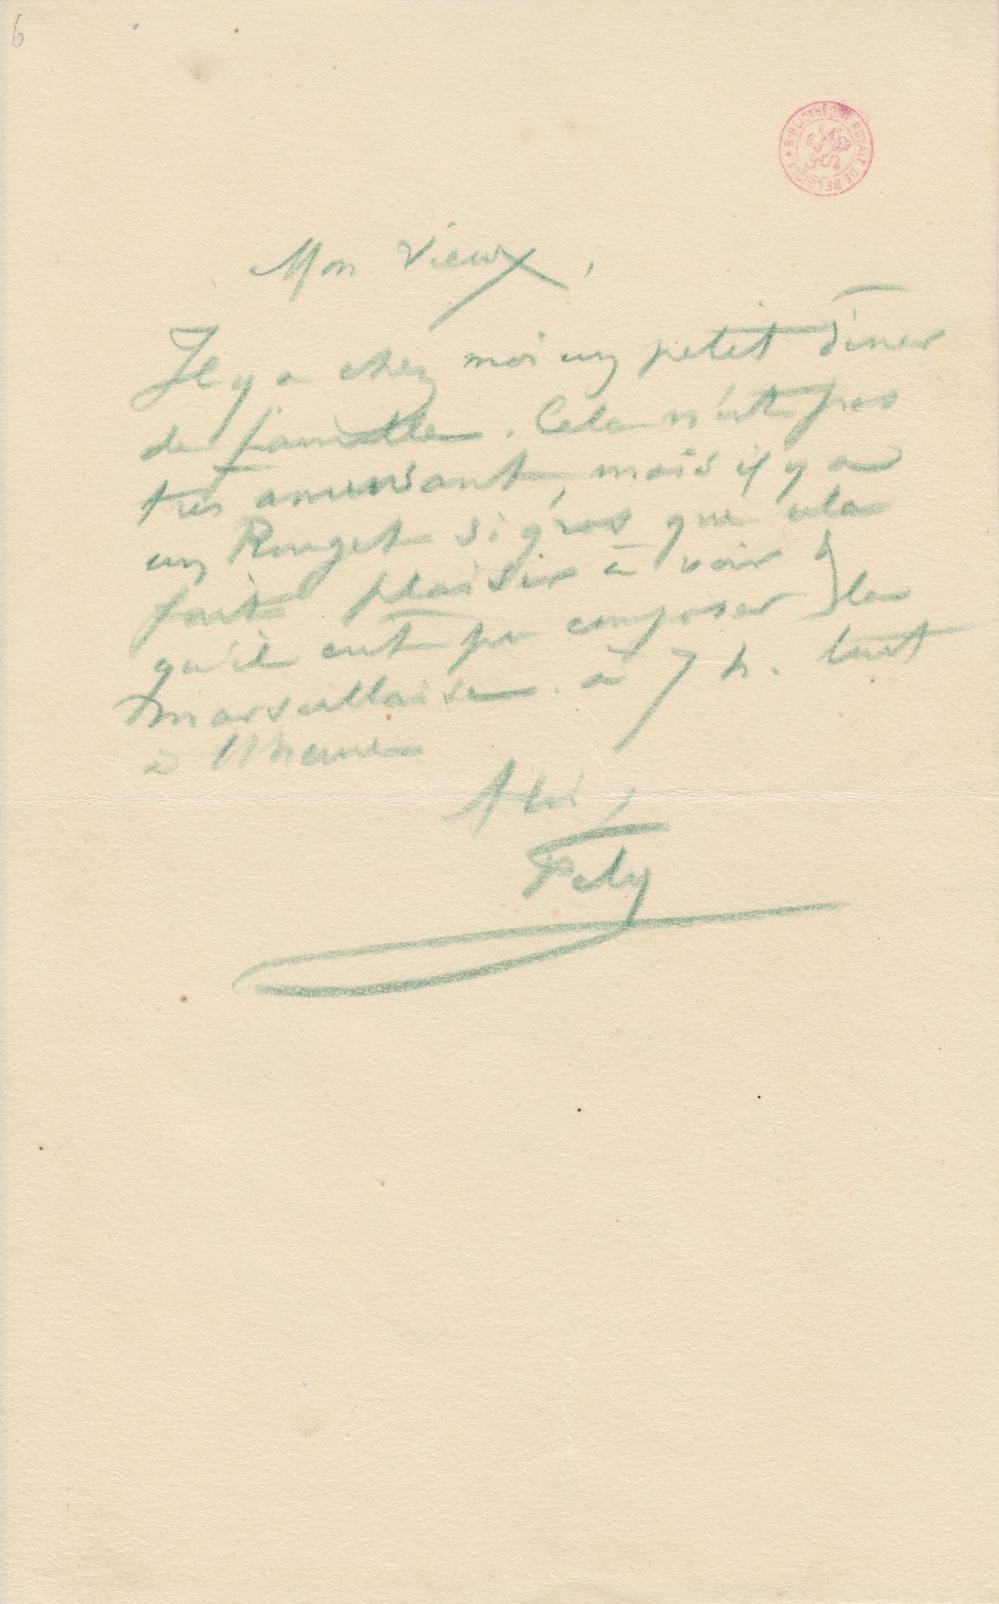 6
BIBLIOTHÈQUE ROYALE DE BELGIQUE
Mon Vieux,
Il y a chez moi un petit dîner
de famille. Cela n'est pas
très amusant, mais il y a
un Rouget si gros que cela
fait plaisir à voir &
qu'il eut pu composer la
Marseillaise. à 7 h. tout
à l'heure
A toi,
Fély